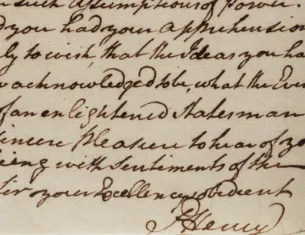 such Assumptions of Power.
you had your apprehension
ly to wish, that the Ideas you ha
acknowledged to be, what the Eve
of an enlightened Statesman
incere Pleasure to hear of yo
being with Sentiments of the
your Excellency obedient
P. Henry